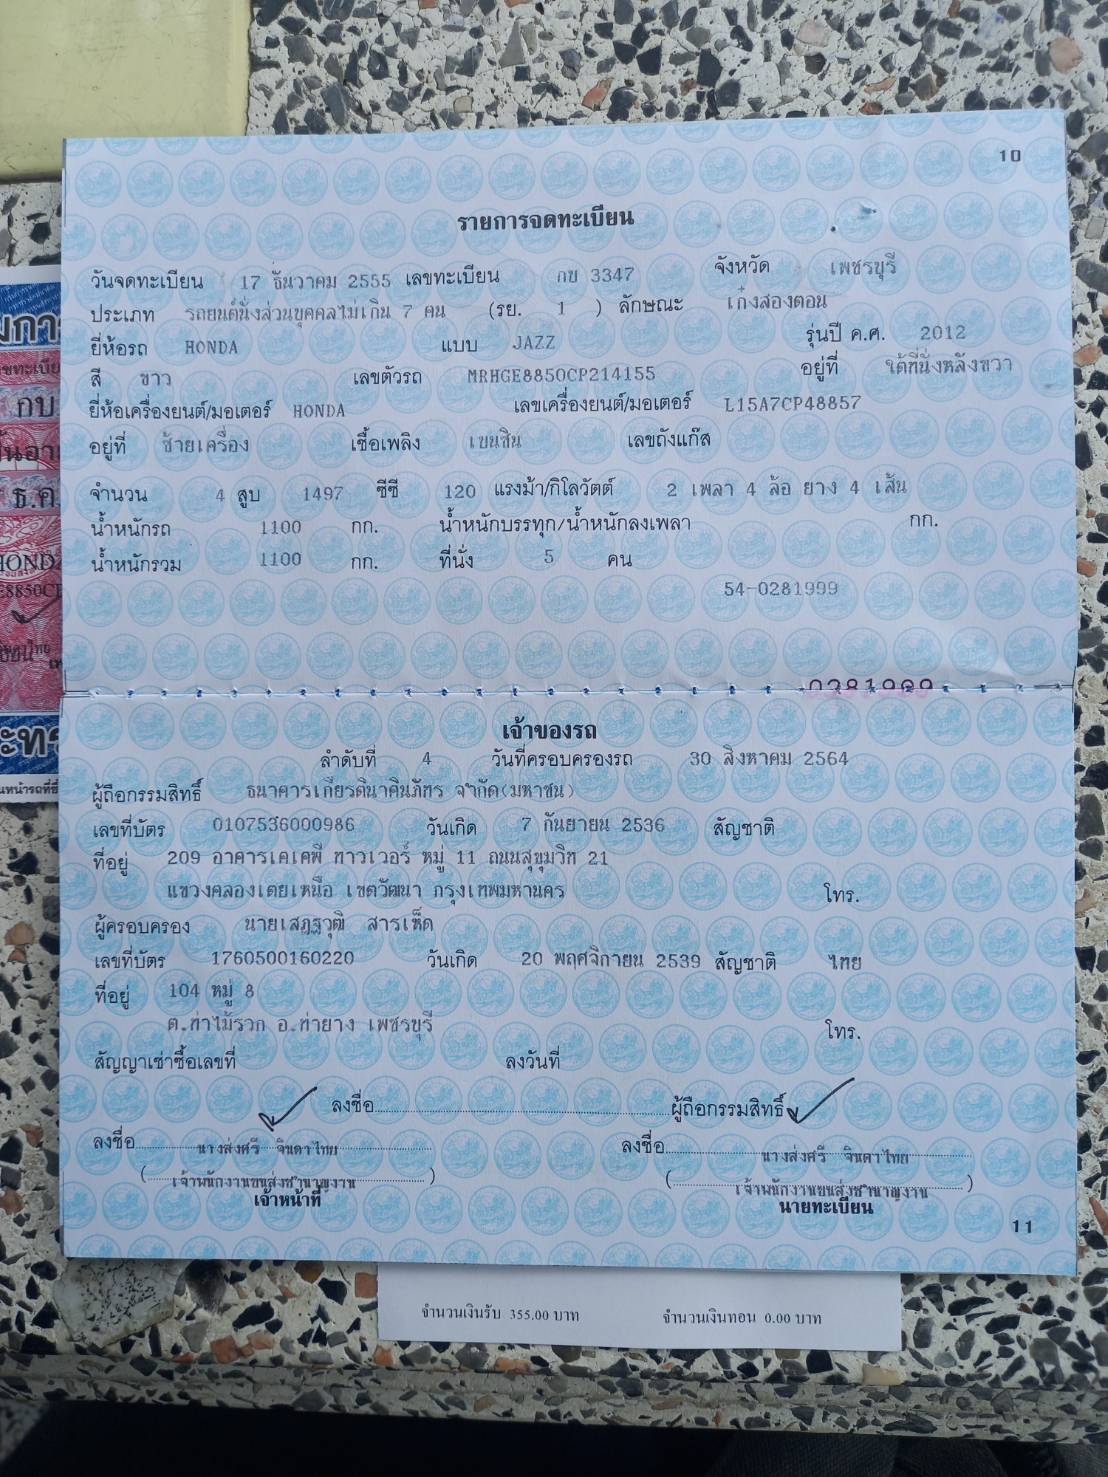 10
รายการจดทะเบียน
วันจดทะเบียน 17 ธันวาคม 2555 เลขทะเบียน กข 3347 จังหวัด เพชรบุรี
ประเภท รถยนต์นั่งส่วนบุคคลไม่เกิน 7 คน (รย. 1 ) ลักษณะ เก๋งสองตอน
ยี่ห้อรถ HONDA แบบ JAZZ รุ่นปี ค.ศ. 2012
สี ขาว เลขตัวรถ MRHGE8850CP214155 อยู่ที่ ใต้ที่นั่งหลังขวา
ยี่ห้อเครื่องยนต์/มอเตอร์ HONDA เลขเครื่องยนต์/มอเตอร์ L15A7CP48857
อยู่ที่ ซ้ายเครื่อง เชื้อเพลิง เบนซิน เลขถังแก๊ส
จำนวน 4 สูบ 1497 ซีซี 120 แรงม้า/กิโลวัตต์ 2 เพลา 4 ล้อ ยาง 4 เส้น
น้ำหนักรถ 1100 กก. น้ำหนักบรรทุก/น้ำหนักลงเพลา กก.
น้ำหนักรวม 1100 กก. ที่นั่ง 5 คน
54-0281999
0281999
เจ้าของรถ
ลำดับที่ 4 วันที่ครอบครองรถ 30 สิงหาคม 2564
ผู้ถือกรรมสิทธิ์ ธนาคารเกียรตินาคินภัทร จำกัด(มหาชน)
เลขที่บัตร 0107536000986 วันเกิด 7 กันยายน 2536 สัญชาติ
ที่อยู่ 209 อาคารเคเคพี ทาวเวอร์ หมู่ 11 ถนนสุขุมวิท 21
แขวงคลองเตยเหนือ เขตวัฒนา กรุงเทพมหานคร โทร.
ผู้ครอบครอง นายเสฏฐวุฒิ สารเห็ด
เลขที่บัตร 1760500160220 วันเกิด 20 พฤศจิกายน 2539 สัญชาติ ไทย
ที่อยู่ 104 หมู่ 8
ต.ท่าไม้รวก อ.ท่ายาง เพชรบุรี โทร.
สัญญาเช่าซื้อเลขที่ ลงวันที่
ลงชื่อ ผู้ถือกรรมสิทธิ์
ลงชื่อ นางส่งศรี จินดาไทย ลงชื่อ นางส่งศรี จินดาไทย
( เจ้าพนักงานขนส่งชำนาญงาน ) ( เจ้าพนักงานขนส่งชำนาญงาน )
เจ้าหน้าที่ นายทะเบียน
11
จำนวนเงินรับ 355.00 บาท จำนวนเงินทอน 0.00 บาท